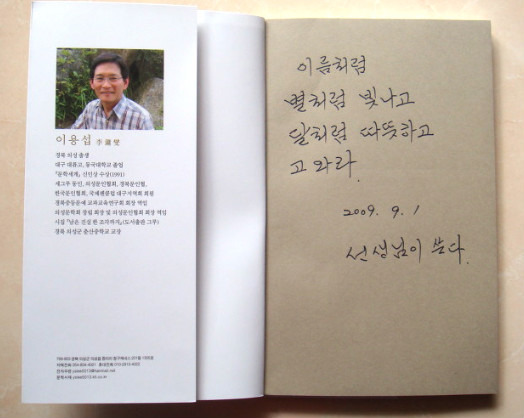 이용섭 李鏞燮
경북 의성 출생
대구 대륜고, 동국대학교 졸업
『문학세계』 신인상 수상(1991)
세그루 동인, 의성문인협회, 경북문인협,
한국문인협회, 국제펜클럽 대구지역회 회원
경북중등문예 교과교육연구회 회장 역임
의성문학회 창립 회장 및 의성문인협회 회장 역임
시집 『남은 진실 한 조각까지』(도서출판 그루)
경북 의성군 춘산중학교 교장
이름처럼
별처럼 빛나고
달처럼 따뜻하고
고와라.
2009. 9. 1
선생님이 쓰다.